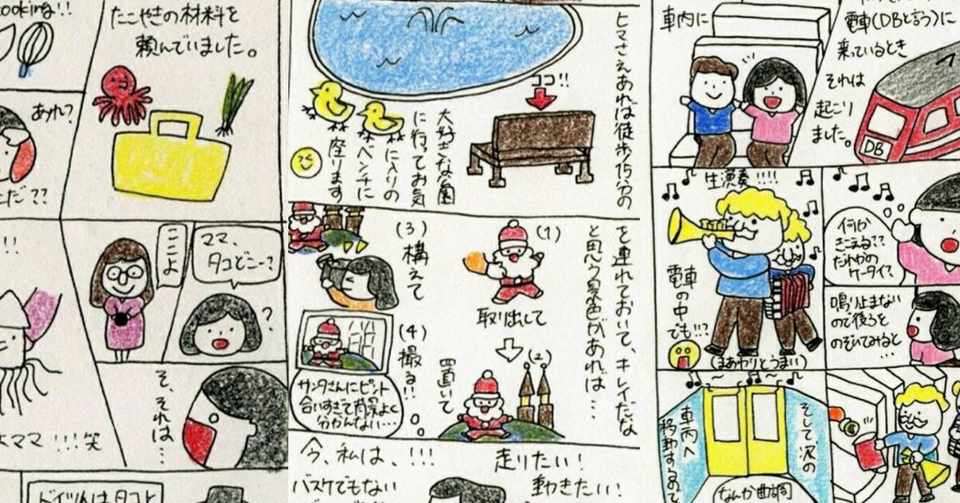 cooking!!
たこやきの材料を
頼んでいました。
あれ?
こだ??
!!
ママ、
タコどこー?
ここよ
?
そ、それは…
ママ!!!笑
ドイツ人はタコと
ヒマさえあれば徒歩15分の
ココ!!
大好きな公園
に行ってお気
に入りの
ベンチに
座ります
を連れておいて、キレイだな
と思う景色があれば…
(1)
取出して
(2)
置いて
(3)
構えて
(4)
撮る!!
サンタさんにピント
合いすぎて背景よく
分かんない…
今、私は、!!!
走りたい!
バスケでもない
動きたい!
車内に
電車(DBと言う)に
乗っているとき
それは
起こり
ました。
DB
生演奏!!!!
電車の中
でも!!?
(まあわりとうまい)
何か
きこえる??
だれかの
ケータイ?
鳴り止まない
ので後ろを
のぞいてみると
…
そして、次の
車内へ
移動するので
なんか曲調